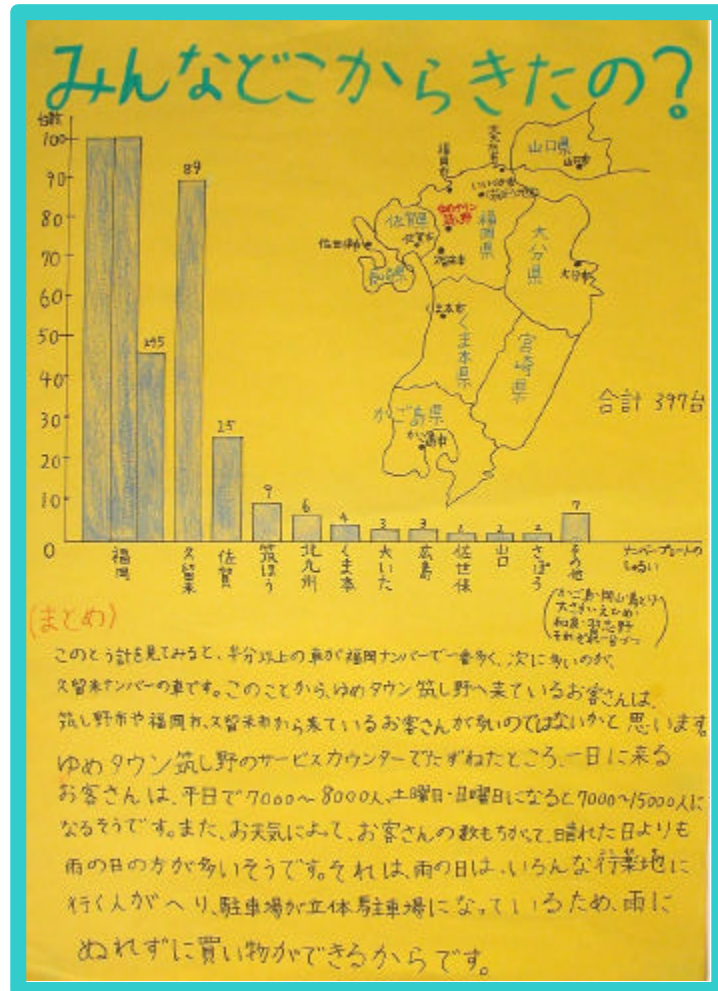 みんなどこからきたの?
台数
100
90
80
70
60
50
40
30
20
10
0
245
89
25
9
6
4
3
3
2
2
2
7
福岡
久留米
佐賀
筑ほう
北九州
くま本
大いた
広島
佐世保
山口
さっぽろ
その他
ナンバープレートの
しゅるい
山口県
山口市
福岡市
ゆめタウン
筑し野
福岡県
佐賀県
佐賀市
大分県
大分市
くま本市
くま本県
宮崎県
かご島県
かご島市
合計 397台
(まとめ)
このとう計を見てみると、半分以上の車が福岡ナンバーで一番多く、次に多いのが、
久留米ナンバーの車です。このことから、ゆめタウン筑し野へ来ているお客さんは、
筑し野市や福岡市、久留米市から来ているお客さんが多いのではないかと思います。
ゆめタウン筑し野のサービスカウンターでたずねたところ、一日に来る
お客さんは、平日で7000〜8000人、土曜日・日曜日になると7000〜15000人に
なるそうです。また、お天気によって、お客さんの数もちがって、晴れた日よりも
雨の日の方が多いそうです。それは、雨の日は、いろんな行楽地に
行く人がへり、駐車場が立体駐車場になっているため、雨に
ぬれずに買い物ができるからです。